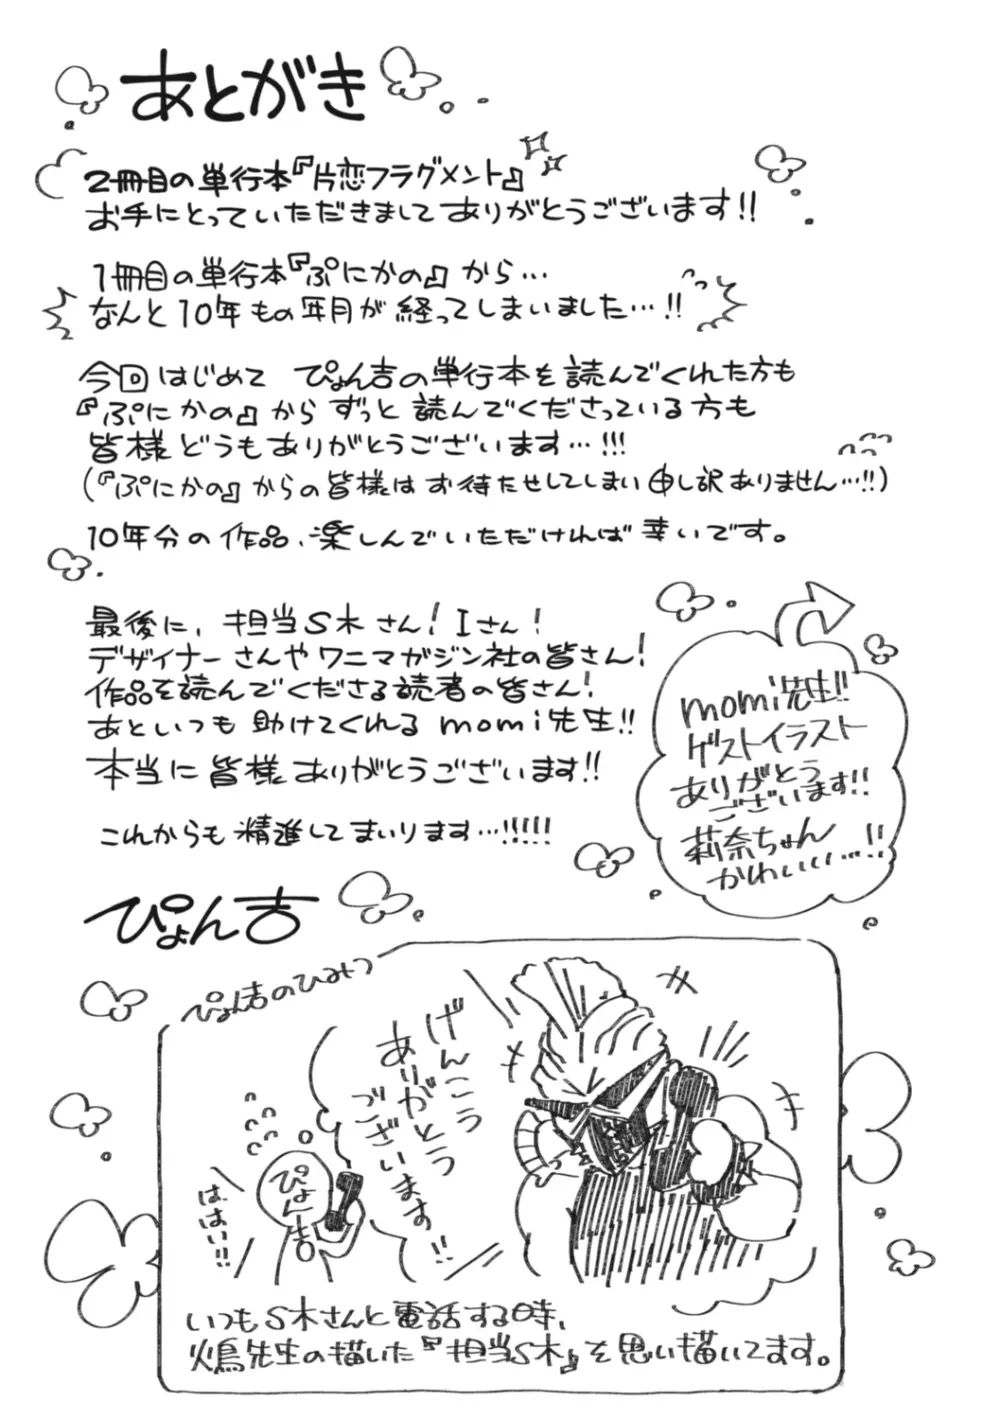 あとがき
2冊目の単行本『片恋フラグメント』
お手にとっていただきましてありがとうございます!!
1冊目の単行本『ぷにかの』から…
なんと10年もの年月が経ってしまいました…!!
今回はじめて ぴょん吉の単行本を読んでくれた方も
『ぷにかの』からずっと読んでくださっている方も
皆様どうもありがとうございます…!!!
(『ぷにかの』からの皆様はお待たせしてしまい申し訳ありません…!!)
10年分の作品、楽しんでいただければ幸いです。
最後に、担当S木さん!Iさん!
デザイナーさんやワニマガジン社の皆さん!
作品を読んでくださる読者の皆さん!
あといつも助けてくれるmomi先生!!
本当に皆様ありがとうございます!!
これからも精進してまいります…!!!!!
ぴょん吉
momi先生!!
ゲストイラスト
ありがとう
ございます!!
莉奈ちゃん
かわいい…!!
ぴょん吉のひみつ
げんこう
ありがとう
ございます!!
ぴょん吉
ははい!!
いつもS木さんと電話する時、
火鳥先生の描いた『担当S木』を思い描いてます。